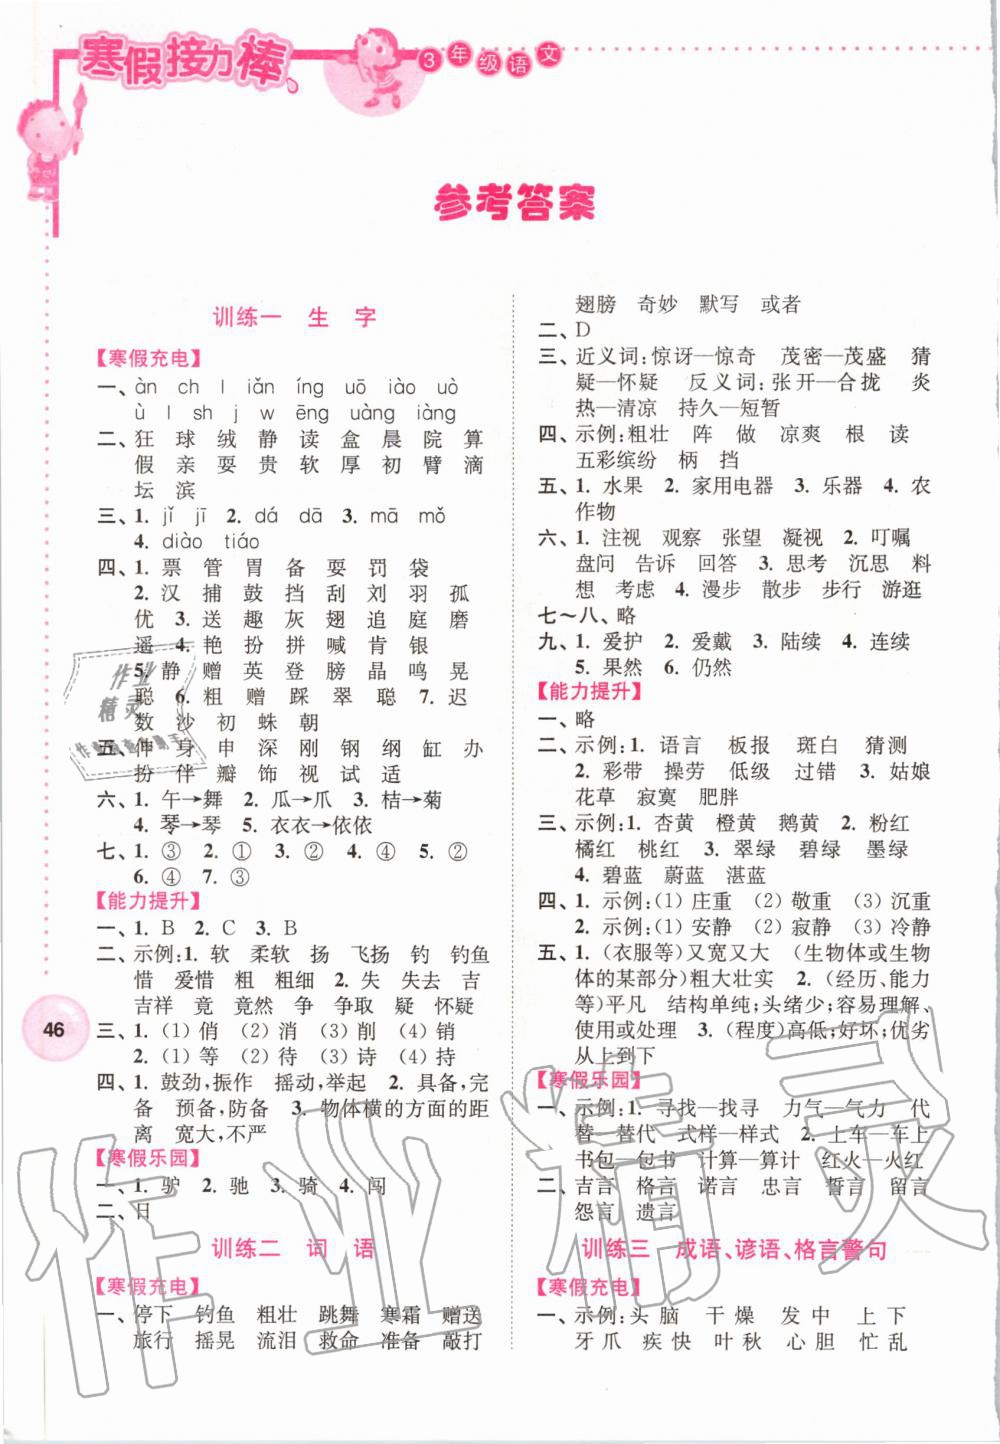 寒假接力棒
3年级语文
参考答案
训练一 生 字
【寒假充电】
一、àn ch l iǎn íng uō iào uò
ù l sh j w ēng uàng iàng
二、狂 球 绒 静 读 盒 晨 院 算
假 亲 耍 贵 软 厚 初 臂 滴
坛 滨
三、1. jǐ jī 2. dá dā 3. mā mǒ
4. diào tiáo
四、1. 票 管 胃 备 耍 罚 袋
2. 汉 捕 鼓 挡 刮 刘 羽 孤
优 3. 送 趣 灰 翅 追 庭 磨
遥 4. 艳 扮 拼 喊 肯 银
5. 静 赠 英 登 膀 晶 鸣 晃
聪 6. 粗 赠 踩 翠 聪 7. 迟
数 沙 初 蛛 朝
五、伸 身 申 深 刚 钢 纲 缸 办
扮 伴 瓣 饰 视 试 适
六、1. 午→舞 2. 瓜→爪 3. 桔→菊
4. 琴→琴 5. 衣衣→依依
七、1. ③ 2. ① 3. ② 4. ④ 5. ②
6. ④ 7. ③
【能力提升】
一、1. B 2. C 3. B
二、示例:1. 软 柔软 扬 飞扬 钓 钓鱼
惜 爱惜 粗 粗细 2. 失 失去 吉
吉祥 竟 竟然 争 争取 疑 怀疑
三、1. (1) 俏 (2) 消 (3) 削 (4) 销
2. (1) 等 (2) 待 (3) 诗 (4) 持
四、1. 鼓劲,振作 摇动,举起 2. 具备,完
备 预备,防备 3. 物体横的方面的距
离 宽大,不严
【寒假乐园】
一、1. 驴 2. 驰 3. 骑 4. 闯
二、日
训练二 词 语
【寒假充电】
一、停下 钓鱼 粗壮 跳舞 寒霜 赠送
旅行 摇晃 流泪 救命 准备 敲打
46
翅膀 奇妙 默写 或者
二、D
三、近义词:惊讶—惊奇 茂密—茂盛 猜
疑—怀疑 反义词:张开—合拢 炎
热—清凉 持久—短暂
四、示例:粗壮 阵 做 凉爽 根 读
五彩缤纷 柄 挡
五、1. 水果 2. 家用电器 3. 乐器 4. 农
作物
六、1. 注视 观察 张望 凝视 2. 叮嘱
盘问 告诉 回答 3. 思考 沉思 料
想 考虑 4. 漫步 散步 步行 游逛
七~八、略
九、1. 爱护 2. 爱戴 3. 陆续 4. 连续
5. 果然 6. 仍然
【能力提升】
一、略
二、示例:1. 语言 板报 斑白 猜测
2. 彩带 操劳 低级 过错 3. 姑娘
花草 寂寞 肥胖
三、示例:1. 杏黄 橙黄 鹅黄 2. 粉红
橘红 桃红 3. 翠绿 碧绿 墨绿
4. 碧蓝 蔚蓝 湛蓝
四、1. 示例:(1) 庄重 (2) 敬重 (3) 沉重
2. 示例:(1) 安静 (2) 寂静 (3) 冷静
五、1. (衣服等)又宽又大 (生物体或生物
体的某部分)粗大壮实 2. (经历、能力
等)平凡 结构单纯;头绪少;容易理解、
使用或处理 3. (程度)高低;好坏;优劣
从上到下
【寒假乐园】
一、示例:1. 寻找—找寻 力气—气力 代
替—替代 式样—样式 2. 上车—车上
书包—包书 计算—算计 红火—火红
二、吉言 格言 诺言 忠言 誓言 留言
怨言 遗言
训练三 成语、谚语、格言警句
【寒假充电】
一、示例:头 脑 干 燥 发 中 上 下
牙 爪 疾 快 叶 秋 心 胆 忙 乱
作业精灵
作业精灵